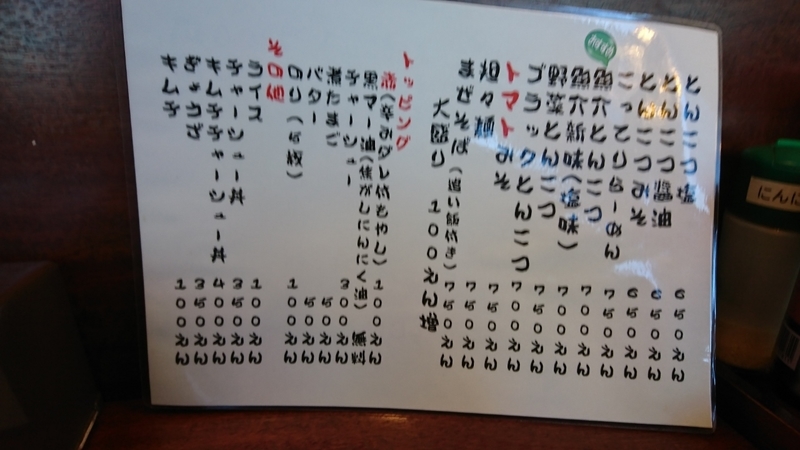 とんこつ塩 650えん
とんこつ醤油 650えん
とんこつみそ 650えん
こってりらーめん 750えん
魚介とんこつ 700えん
魚介新味(塩味) 700えん
野菜とんこつ 750えん
ブラックとんこつ 700えん
トマトみそ 750えん
坦々麺 750えん
まぜそば(追い飯付き) 750えん
大盛り 100えん増
トッピング
(辛みダレ付もやし) 100えん
黒マー油(焦がしにんにく油) 無料
チャーシュー 300えん
煮たまご 50えん
バター 50えん
のり(5枚) 100えん
その他
ライス 100えん
チャーシュー丼 350えん
キムチチャーシュー丼 400えん
ぎょうざ 350えん
キムチ 100えん
にんに